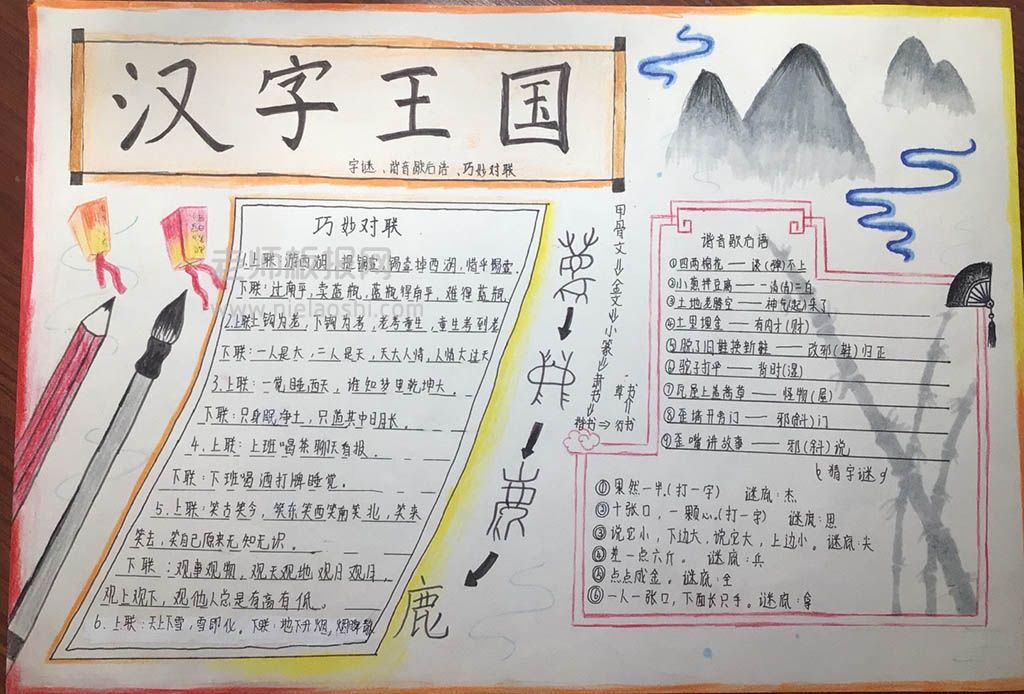 汉字王国
字谜、谐音歇后语、巧妙对联
巧妙对联
1.上联:游西湖,提锡壶,锡壶掉西湖,惜乎锡壶.
下联:过南平,卖蓝瓶,蓝瓶得南平,难得蓝瓶
2.上联:上钩为老,下钩为考,老考童生,童生考到老
下联:一人是大,二人是天,天大人情,人情大过天
3.上联:一觉睡西天,谁知梦里乾坤大.
下联:只身眠净土,只道其中日月长.
4.上联:上班喝茶聊天看报.
下联:下班喝酒打牌睡觉.
5.上联:笑古笑今,笑东笑西笑南笑北,笑来
笑去,笑自己原来无知无识.
下联:观事观物,观天观地观日观月,
观上观下,观他人总是有高有低.
6.上联:天上下雪,雪即化.下联:地下升烟,
甲骨文》金文》小篆》隶书》
楷书⇒
草书
行书
鹿
老师板报网
www.mielaoshi.com
谐音歇后语
①四两棉花——谈(弹)不上
②小葱拌豆腐——一清(青)二白
③土地老腾空——神气(起)来了
④土里埋金——有内才(财)
⑤脱了旧鞋换新鞋——改邪(鞋)归正
⑥驼子打伞——背时(湿)
⑦瓦屋上盖茅草——怪物(屋)
⑧歪墙开旁门——邪(斜)门
⑨歪嘴讲故事——邪(斜)说
猜字谜
①果然一半.(打一字) 谜底:杰
②十张口,一颗心.(打一字) 谜底:思
③说它小,下边大,说它大,上边小。谜底:尖
④差一点六斤。谜底:兵
⑤点点成金。谜底:全
⑥一人一张口,下面长只手。谜底:拿